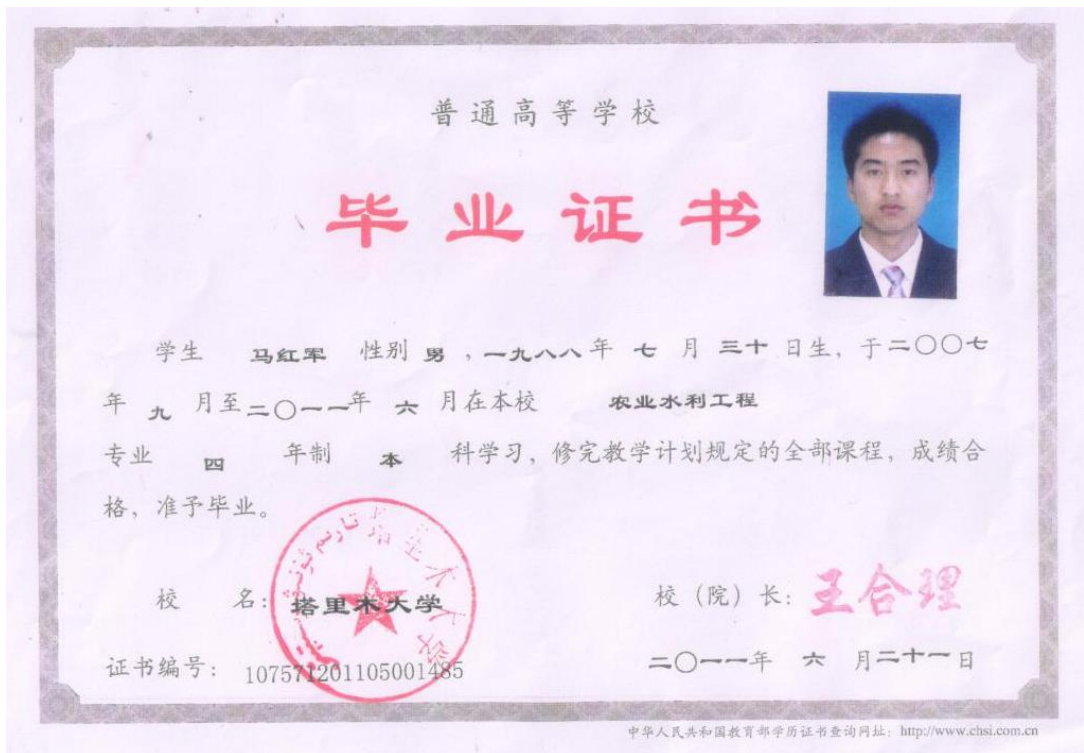 普通高等学校
毕业证书
学生 马红军 性别 男 ，一九八八 年 七 月 三十 日生，于二〇〇七
年 九 月至二〇一一年 六 月在本校 农业水利工程
专业 四 年制 本 科学习，修完教学计划规定的全部课程，成绩合
格，准予毕业。
塔里木大学
校 名：塔里木大学
校（院）长：王合理
证书编号：107571201105001485
二〇一一年 六 月二十一日
中华人民共和国教育部学历证书查询网址：http://www.chsi.com.cn